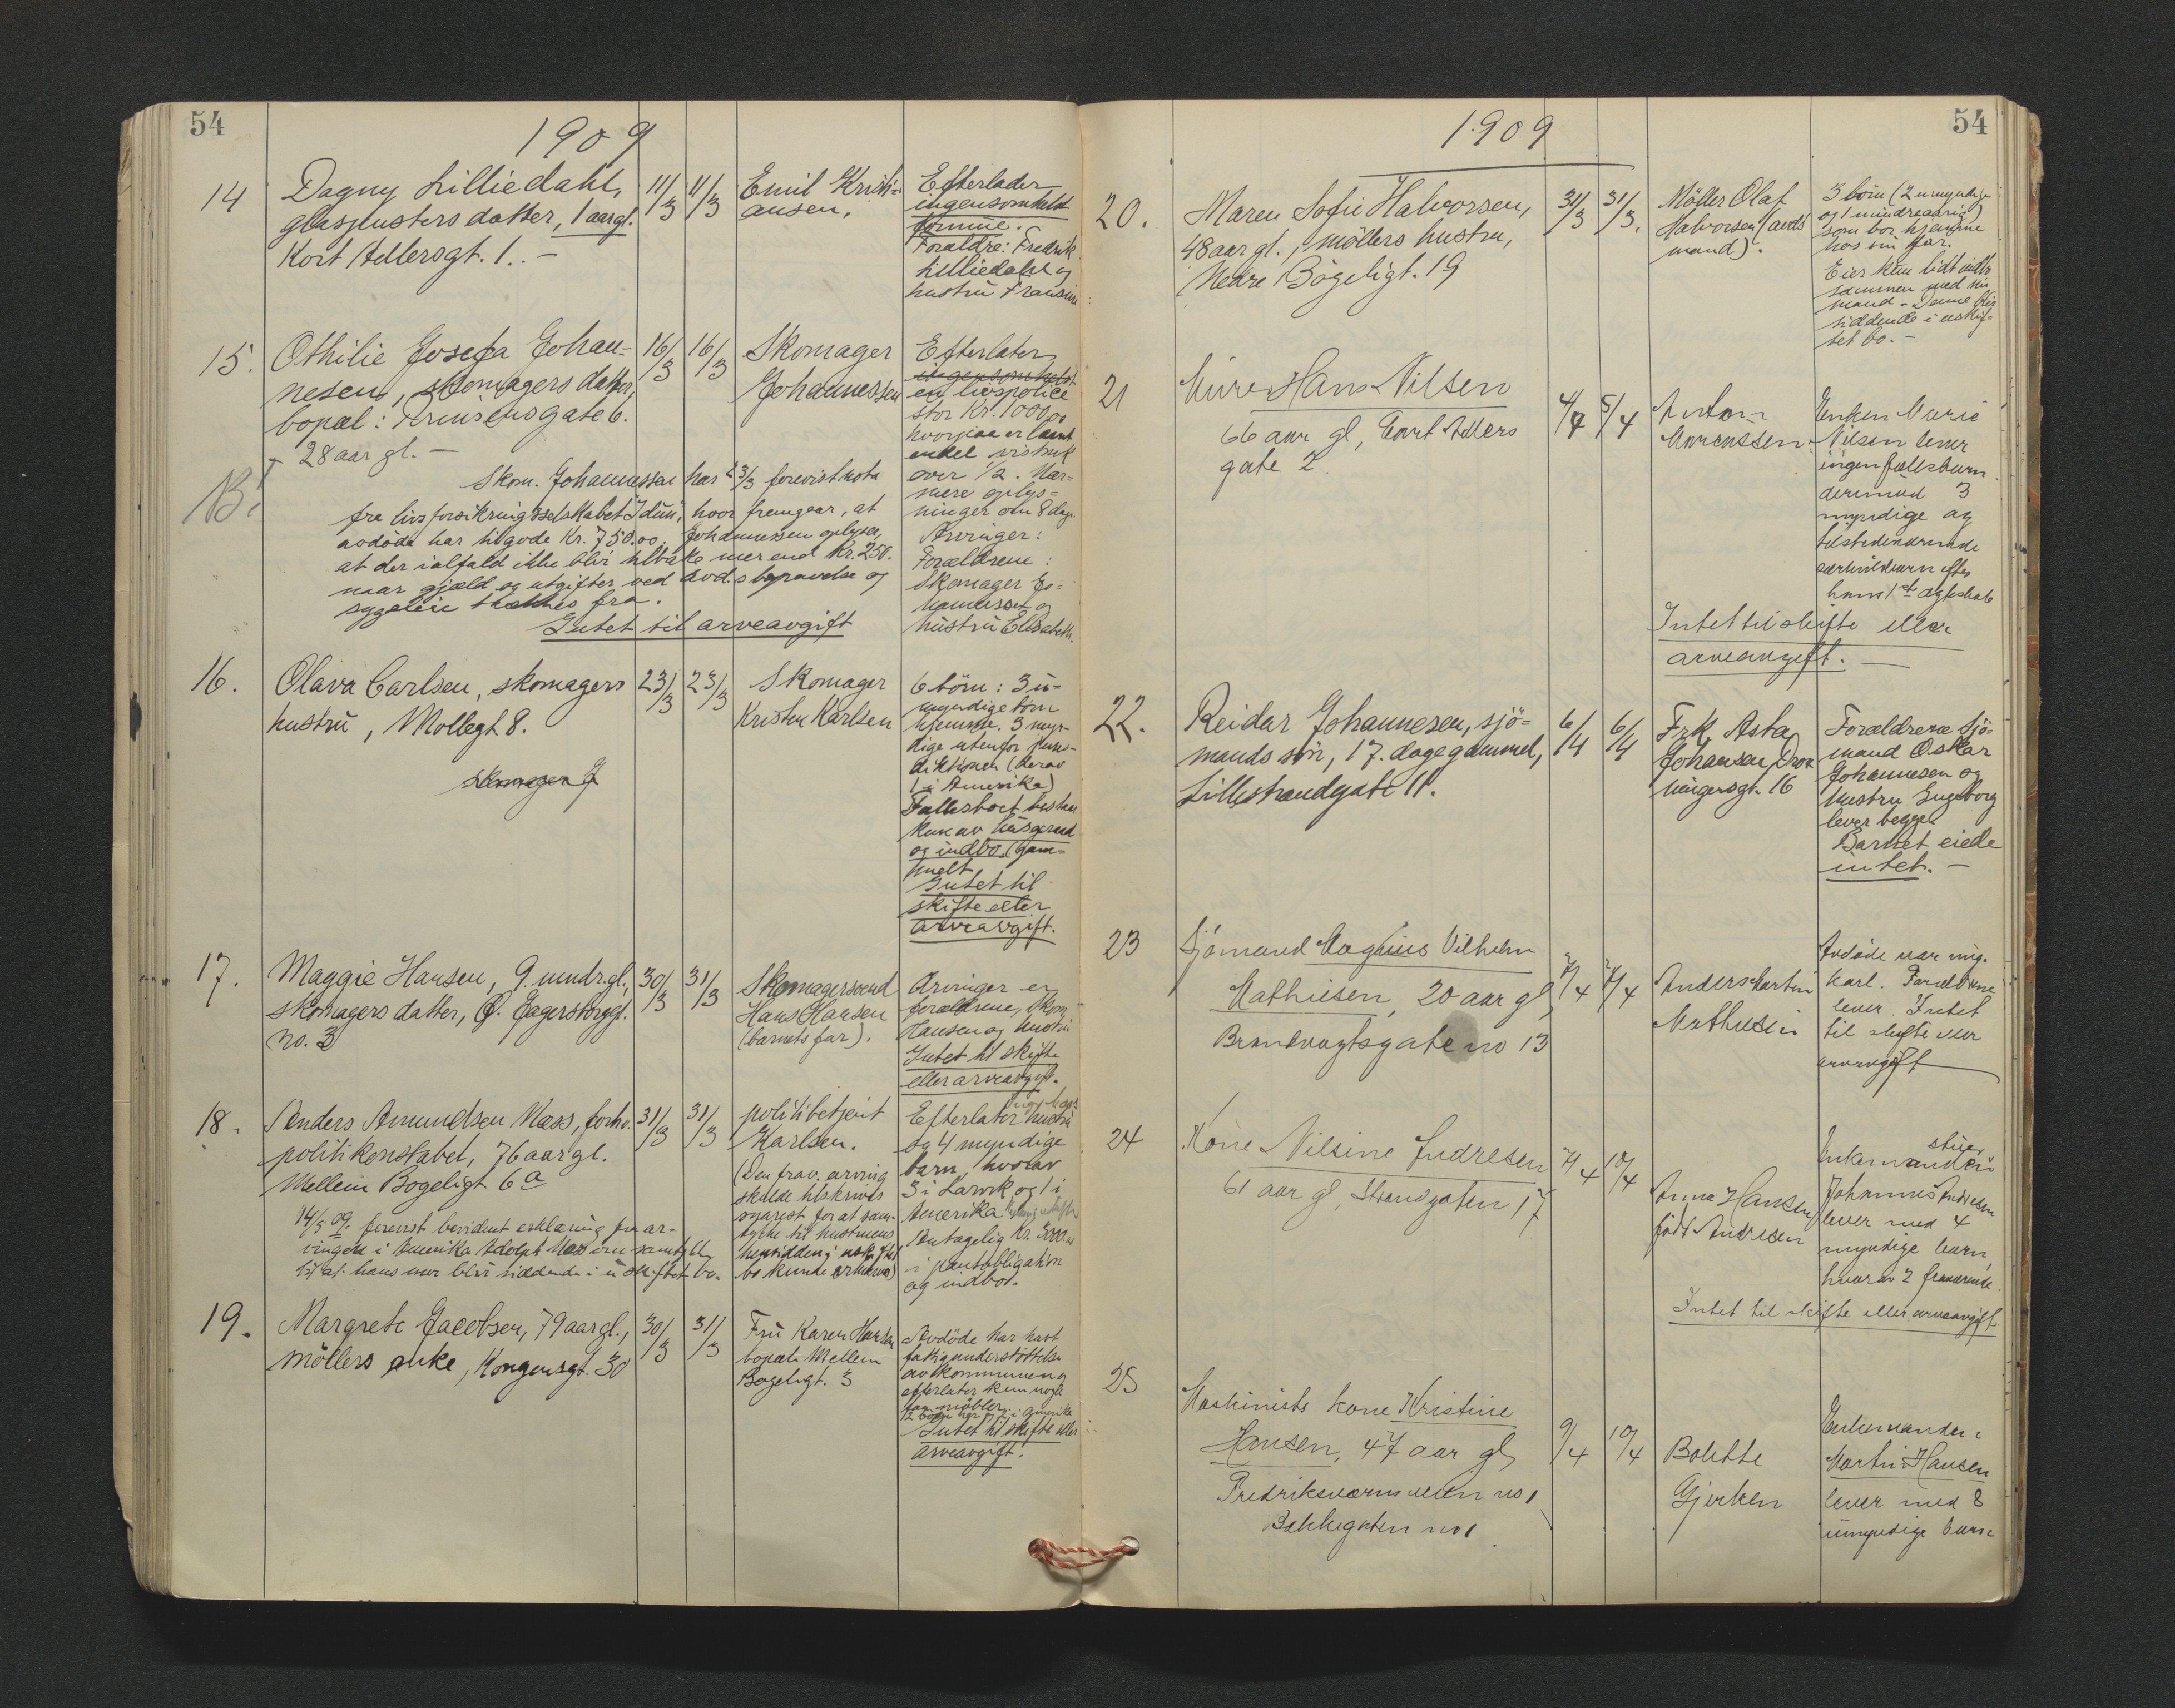 54
1909
14
Dagny Lilliedahl,
glaspusters datter, 1 aar gl.
Kort Adlersgt. 1. -
11/3
11/3
Emil Kristi-
ansen.
Efterlader
ingensomhelst
formue.
Forældre: Fredrik
Lilliedahl og
hustru Fransine
15.
Othilie Josefa Johan-
nesen, skomagers datter,
bopæl: Prinsensgate 6.
28 aar gl. -
16/3
16/3
Skomager
Johannessen
Efterlater
ingensomhelst
en livspolice
stor Kr. 1000,00
hvorpaa er laant
endel vistnok
over 1/2. Nær-
mere oplys-
ninger om 8 dage.
Arvinger:
Forældrene:
Skomager Jo-
hannessen og
hustru Elisabeth.
NB!
Skom. Johannessen har 23/3 forevist nota
fra livsforsikringsselskabet "Idun", hvor fremgaar, at
avdøde har tilgode Kr. 750.00. Johannessen oplyser,
at der ialfald ikke blir tilbake mer end Kr. 250.
naar gjæld og utgifter ved avd.s begravelse og
sygeleie trækkes fra.
Intet til arveavgift
16.
Olava Carlsen, skomagers
hustru, Møllegt. 8.
skomager J
23/3
23/3
Skomager
Kristen Karlsen
6 børn: 3 u-
myndige som
hjemme. 3 myn-
dige utenfor juris-
diktionen (derav
1 i Amerika)
Fællesboet bestaar
kun av husgeraad
og indbo. (gam-
melt
Intet til
skifte eller
arveavgift.
17.
Maggie Hansen, 9. mndr. gl.,
skomagers datter, Ø. Jægerstorggt.
no. 3
30/3
31/3
Skomagersvend
Hans Hansen
(barnets far).
Arvinger er
forældrene, Skom.
Hansen og hustru
Intet til skifte
eller arveavgift.
18.
Anders Amundsen Næss, forhv.
politikonstabel, 76 aar gl.
Mellem Bøgeligt. 6 a
31/3
31/3
politibetjent
Karlsen.
(Den frav. arving
skulde tilskrives
snarest for at sam-
tykke til hustruens
hensidden i uskiftet
bo kunde erhverves)
Efterlater hustru
og 4 myndige
barn, hvorav
3 i Larvik og 1 i
Amerika
Antagelig Kr. 3000,00
i pantobligation
og indbo.
14/5 09. forevist bevidnet erklæring fra ar-
vingen i Amerika Adolph Næss om samtykke
til at hans mor blir siddende i uskiftet bo.
19.
Margrete Jacobsen, 79 aar gl.,
møllers enke, Kongensgt. 30
30/3
31/3
Fru Karen Hansen
bopæl: Mellem
Bøgeligt. 3
Avdøde har havt
fattigunderstøttelse
av kommunen og
efterlater kun nogle
faa møbler.
2 børn her og 1 i Amerika
Intet til skifte eller
arveavgift.
54
1909
20.
Maren Sofie Halvorsen,
48 aar gl., møllers hustru,
Nedre Bøgeligt. 19
31/3
31/3.
Møller Olaf
Halvorsen (avds
mand).
3 børn (2 umyndige
og 1 mindreaarig)
som bor hjemme
hos sin far.
Eier kun lidt indbo
sammen med sin
mand. - Denne blir
siddende i uskif-
tet bo. -
21
Murer Hans Nilsen
66 aar gl, Cort Adlers
gate 2.
4/4
5/4
Anton
Mørenssen
Enken Marie
Nilsen lever
ingen fællesbarn.
derimod 3
myndige og
tilstedeværende
særkuldbarn efter
hans 1st ægteskab
Intet til skifte eller
arveavgift. -
22.
Reidar Johannesen, sjø-
mands søn, 17. dage gammel,
Lillestrandgate 11.
6/4
6/4
Frk. Asta
Johansen, Dron
ningensgt. 16
Forældrene Sjø-
mand Oskar
Johannesen og
hustru Ingeborg
lever begge
Barnet eiede
intet. -
23
Sjømand Magnus Vilhelm
Mathiesen, 20 aar gl,
Brandvagtsgate no 13
7/4
7/4
Anders Martin
Mathiesen
Avdøde var ung-
karl. Forældrene
lever. Intet
til skifte eller
arveavgift
24
Kone Nilsine Andresen
61 aar gl, Strandgaten 17
7/4
10/4
Anna Hansen
født Andresen
Enkemanden
Johannes Andresen
lever med 4
myndige barn
hvorav 2 fraværende.
Intet til skifte eller arveavgift.
25
Maskinists kone Kristine
Hansen, 47 aar gl,
Fredriksværnsveien no 1
Bakkegaten no 1
9/4
10/4
Bolette
Gjerken
Enkemanden
Martin Hansen
lever med 8
umyndige barn